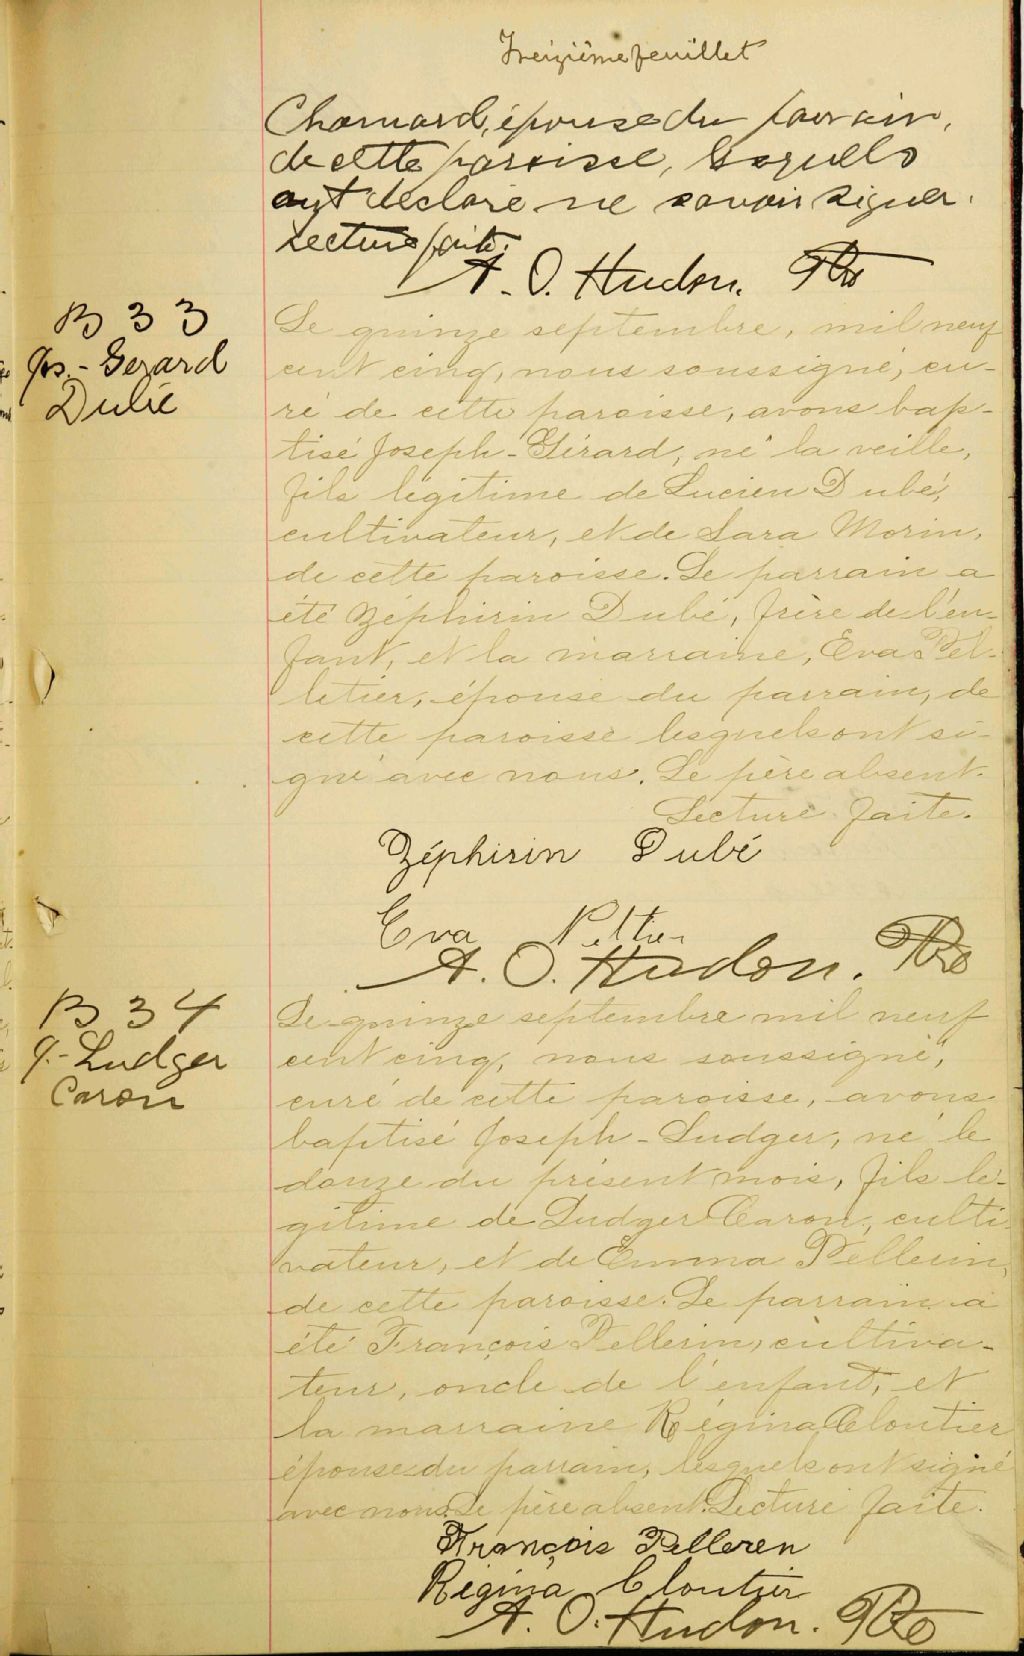 Treizième feuillet
Chamard, épouse du parrain,
de cette paroisse, lesquels
ont déclaré ne savoir signer.
Lecture faite.
A. O. Hudon. Ptre
B 33
Jos.-Gerard
Dubé
Le quinze septembre, mil neuf
cent cinq, nous soussigné, cu-
ré de cette paroisse, avons bap-
tisé Joseph-Gérard, né la veille,
fils légitime de Lucien Dubé,
cultivateur, et de Sara Morin,
de cette paroisse. Le parrain a
été Zéphirin Dubé, frère de l'en-
fant, et la marraine, Eva Pel-
letier, épouse du parrain, de
cette paroisse lesquels ont si-
gné avec nous. Le père absent.
Lecture faite.
Zéphirin Dubé
Eva Peltier
A. O. Hudon. Ptre
B 34
J.-Ludger
Caron
Le quinze septembre mil neuf
cent cinq, nous soussigné,
curé de cette paroisse, avons
baptisé Joseph-Ludger, né le
douze du présent mois, fils lé-
gitime de Ludger Caron, culti-
vateur, et de Emma Pellerin,
de cette paroisse. Le parrain a
été François Pellerin, cultiva-
teur, oncle de l'enfant, et
la marraine Régina Cloutier
épouse du parrain, lesquels ont signé
avec nous. Le père absent. Lecture faite.
François Pelleren
Régina Cloutier
A. O. Hudon. Ptre